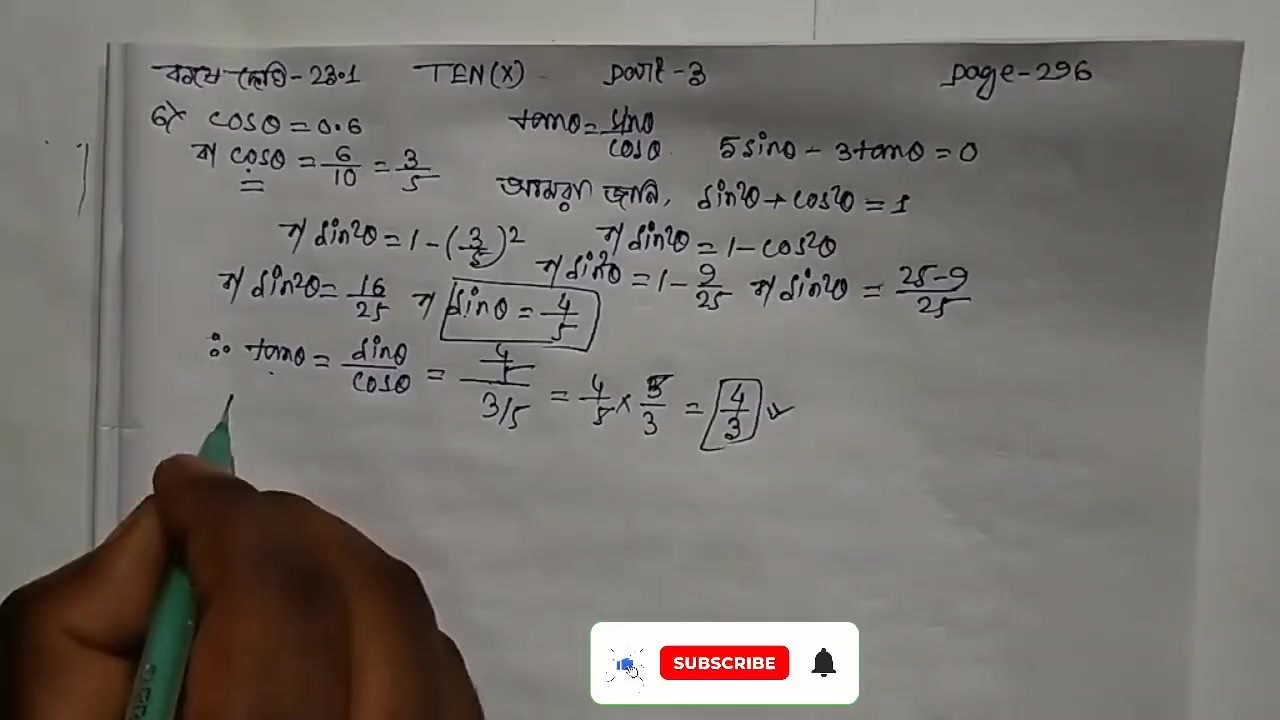 কষে দেখি - 23.1 TEN(X) part-3 page-296
6) cosθ = 0.6 tanθ = sinθ/cosθ 5sinθ - 3tanθ = 0
বা cosθ = 6/10 = 3/5
আমরা জানি, sin²θ + cos²θ = 1
বা sin²θ = 1 - (3/5)² বা sin²θ = 1 - cos²θ
বা sin²θ = 1 - 9/25 বা sin²θ = 25-9/25
বা sin²θ = 16/25 বা sinθ = 4/5
∴ tanθ = sinθ/cosθ = 4/5/3/5 = 4/5 × 5/3 = 4/3
SUBSCRIBE